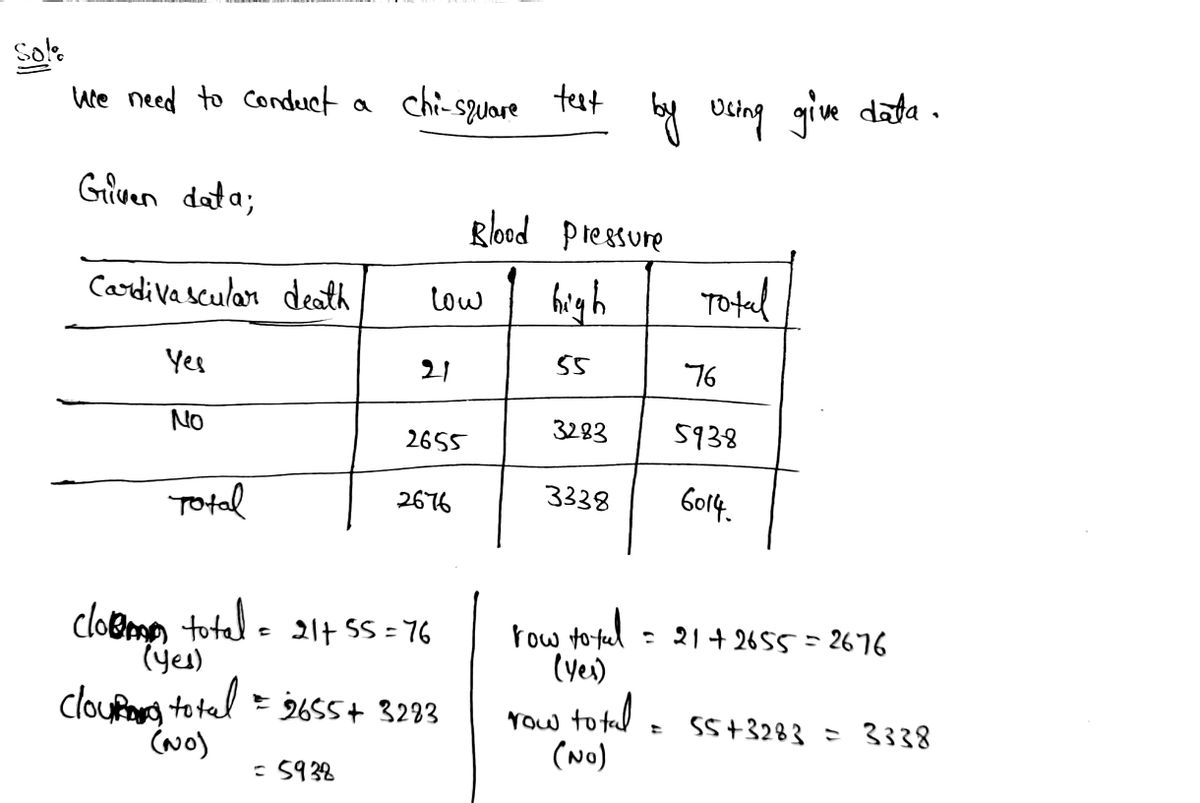 Sol:
We need to conduct a chi-square test by using give data.
Given data;
Blood pressure
Cardivascular death low high Total
Yes 21 55 76
NO 2655 3283 5938
Total 2676 3338 6014.
total = 21+55=76
(Yes)
total = 2655+ 3283
(NO)
= 5938
row total = 21+2655=2676
(Yes)
row total = 55+3283 = 3338
(NO)